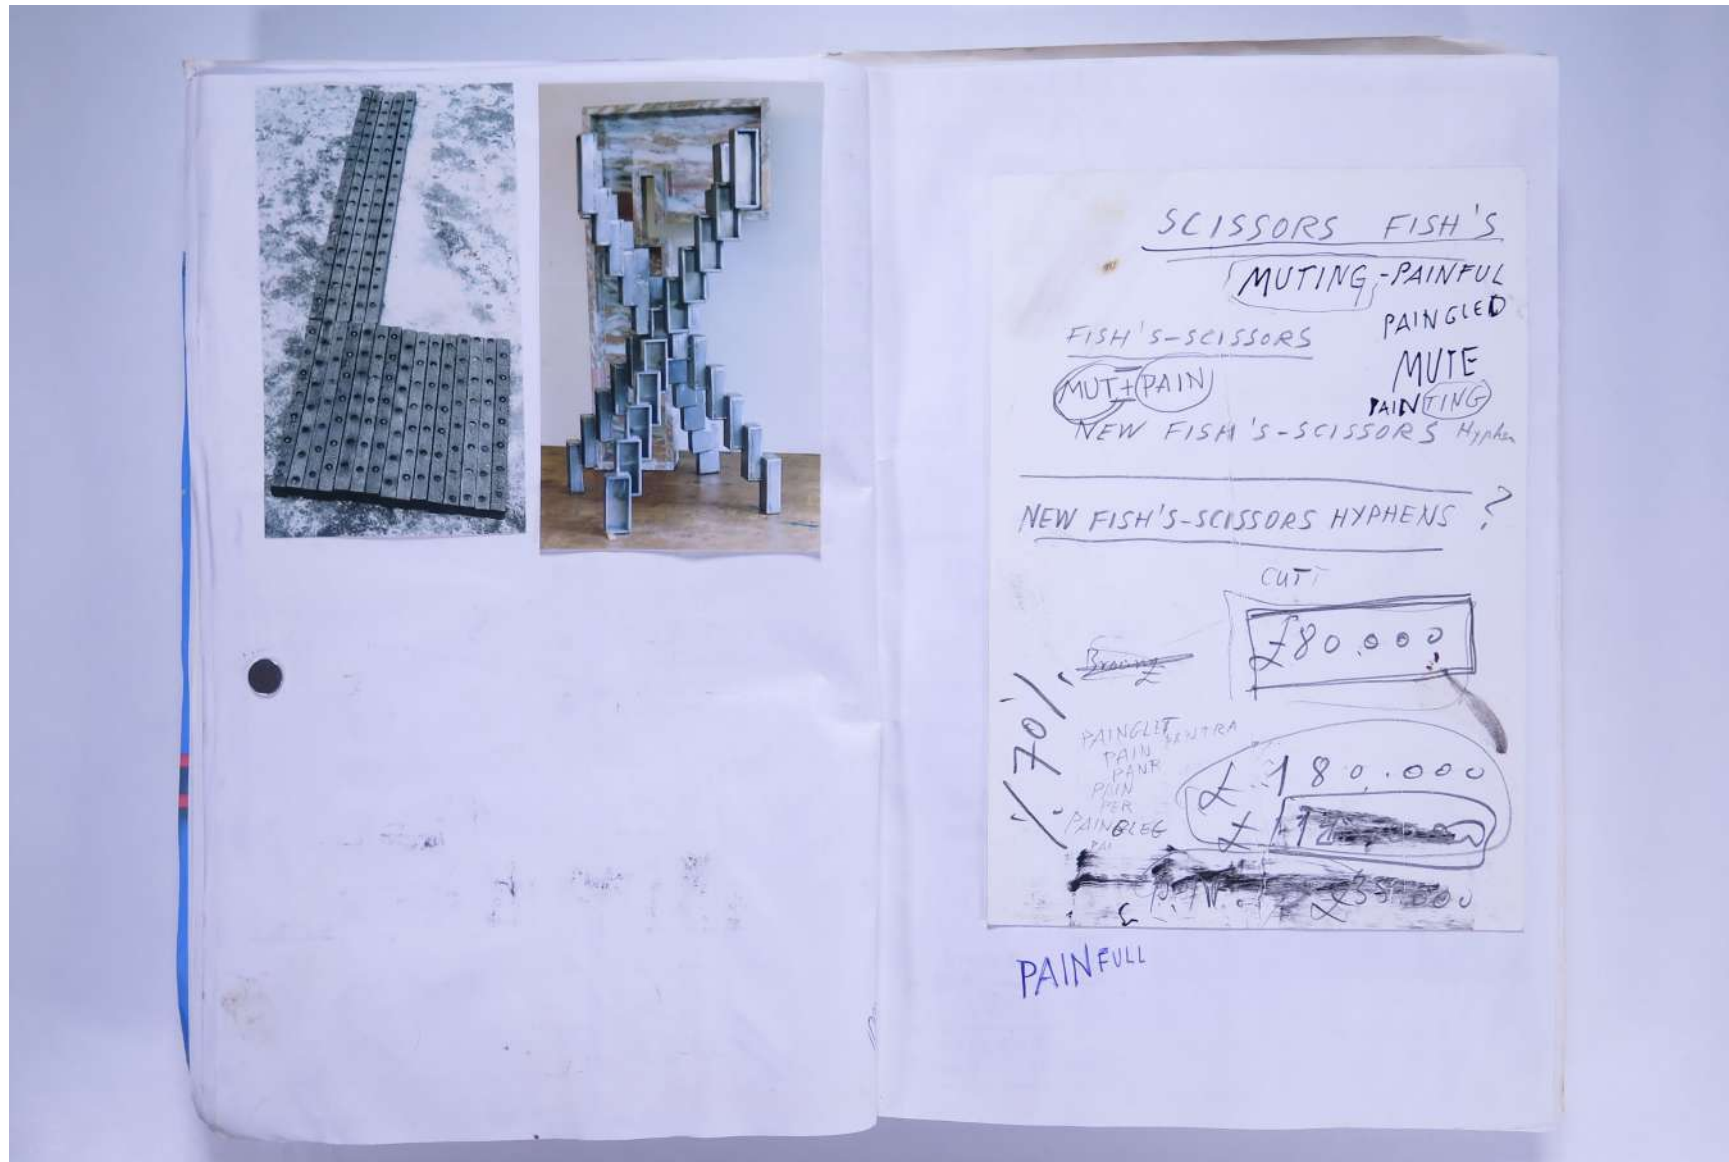 SCISSORS FISH'S
MUTING-PAINFUL
PAINGLED
FISH'S-SCISSORS
MUTE
MUT+PAIN
PAINTING
NEW FISH'S-SCISSORS Hyphen
NEW FISH'S-SCISSORS HYPHENS ?
CUT
£80.000
% 70%
PAINGLET
PAIN
PAIN
PER
£.180.000
PAINFULL